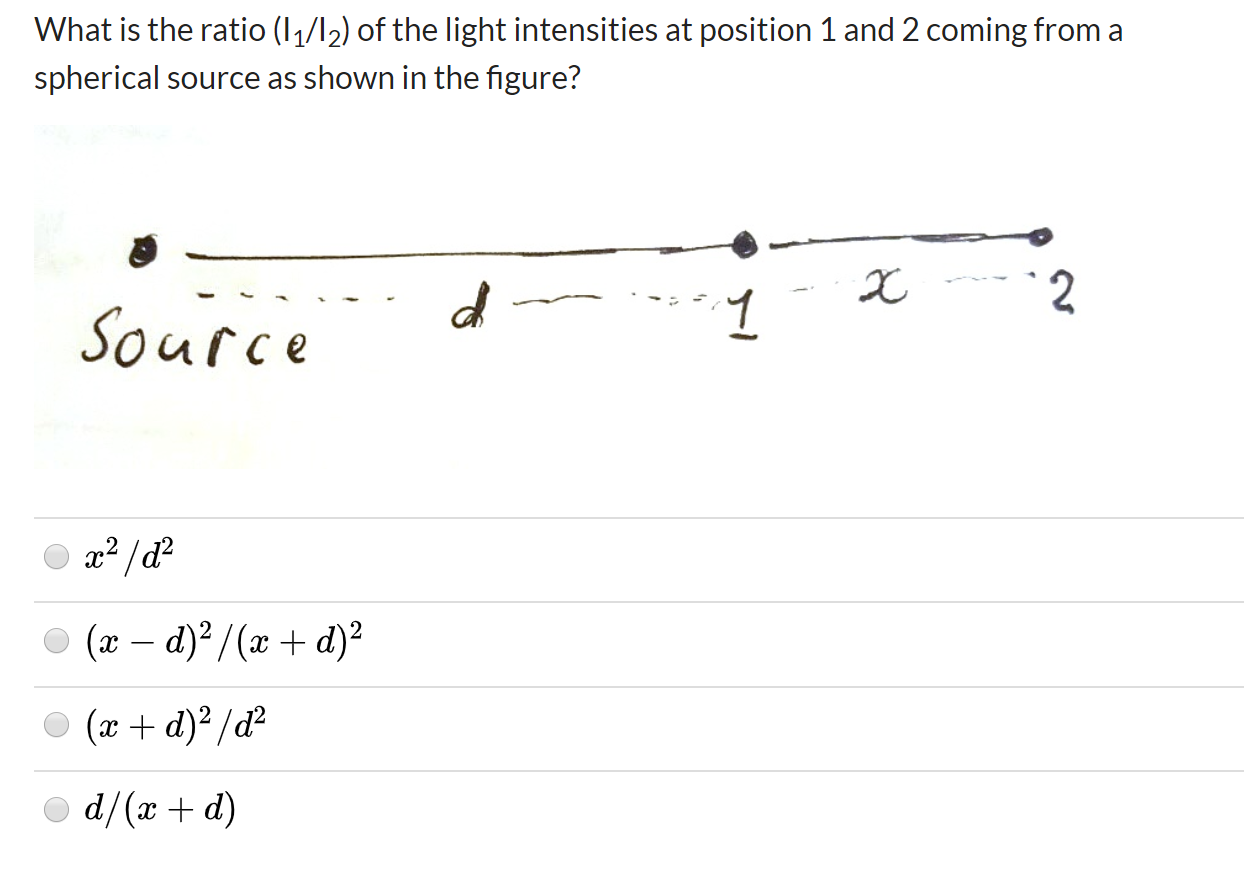 What is the ratio (I₁/I₂) of the light intensities at position 1 and 2 coming from a
spherical source as shown in the figure?
d 1 x 2
Source
x² /d²
(x − d)² /(x + d)²
(x + d)² /d²
d/(x + d)